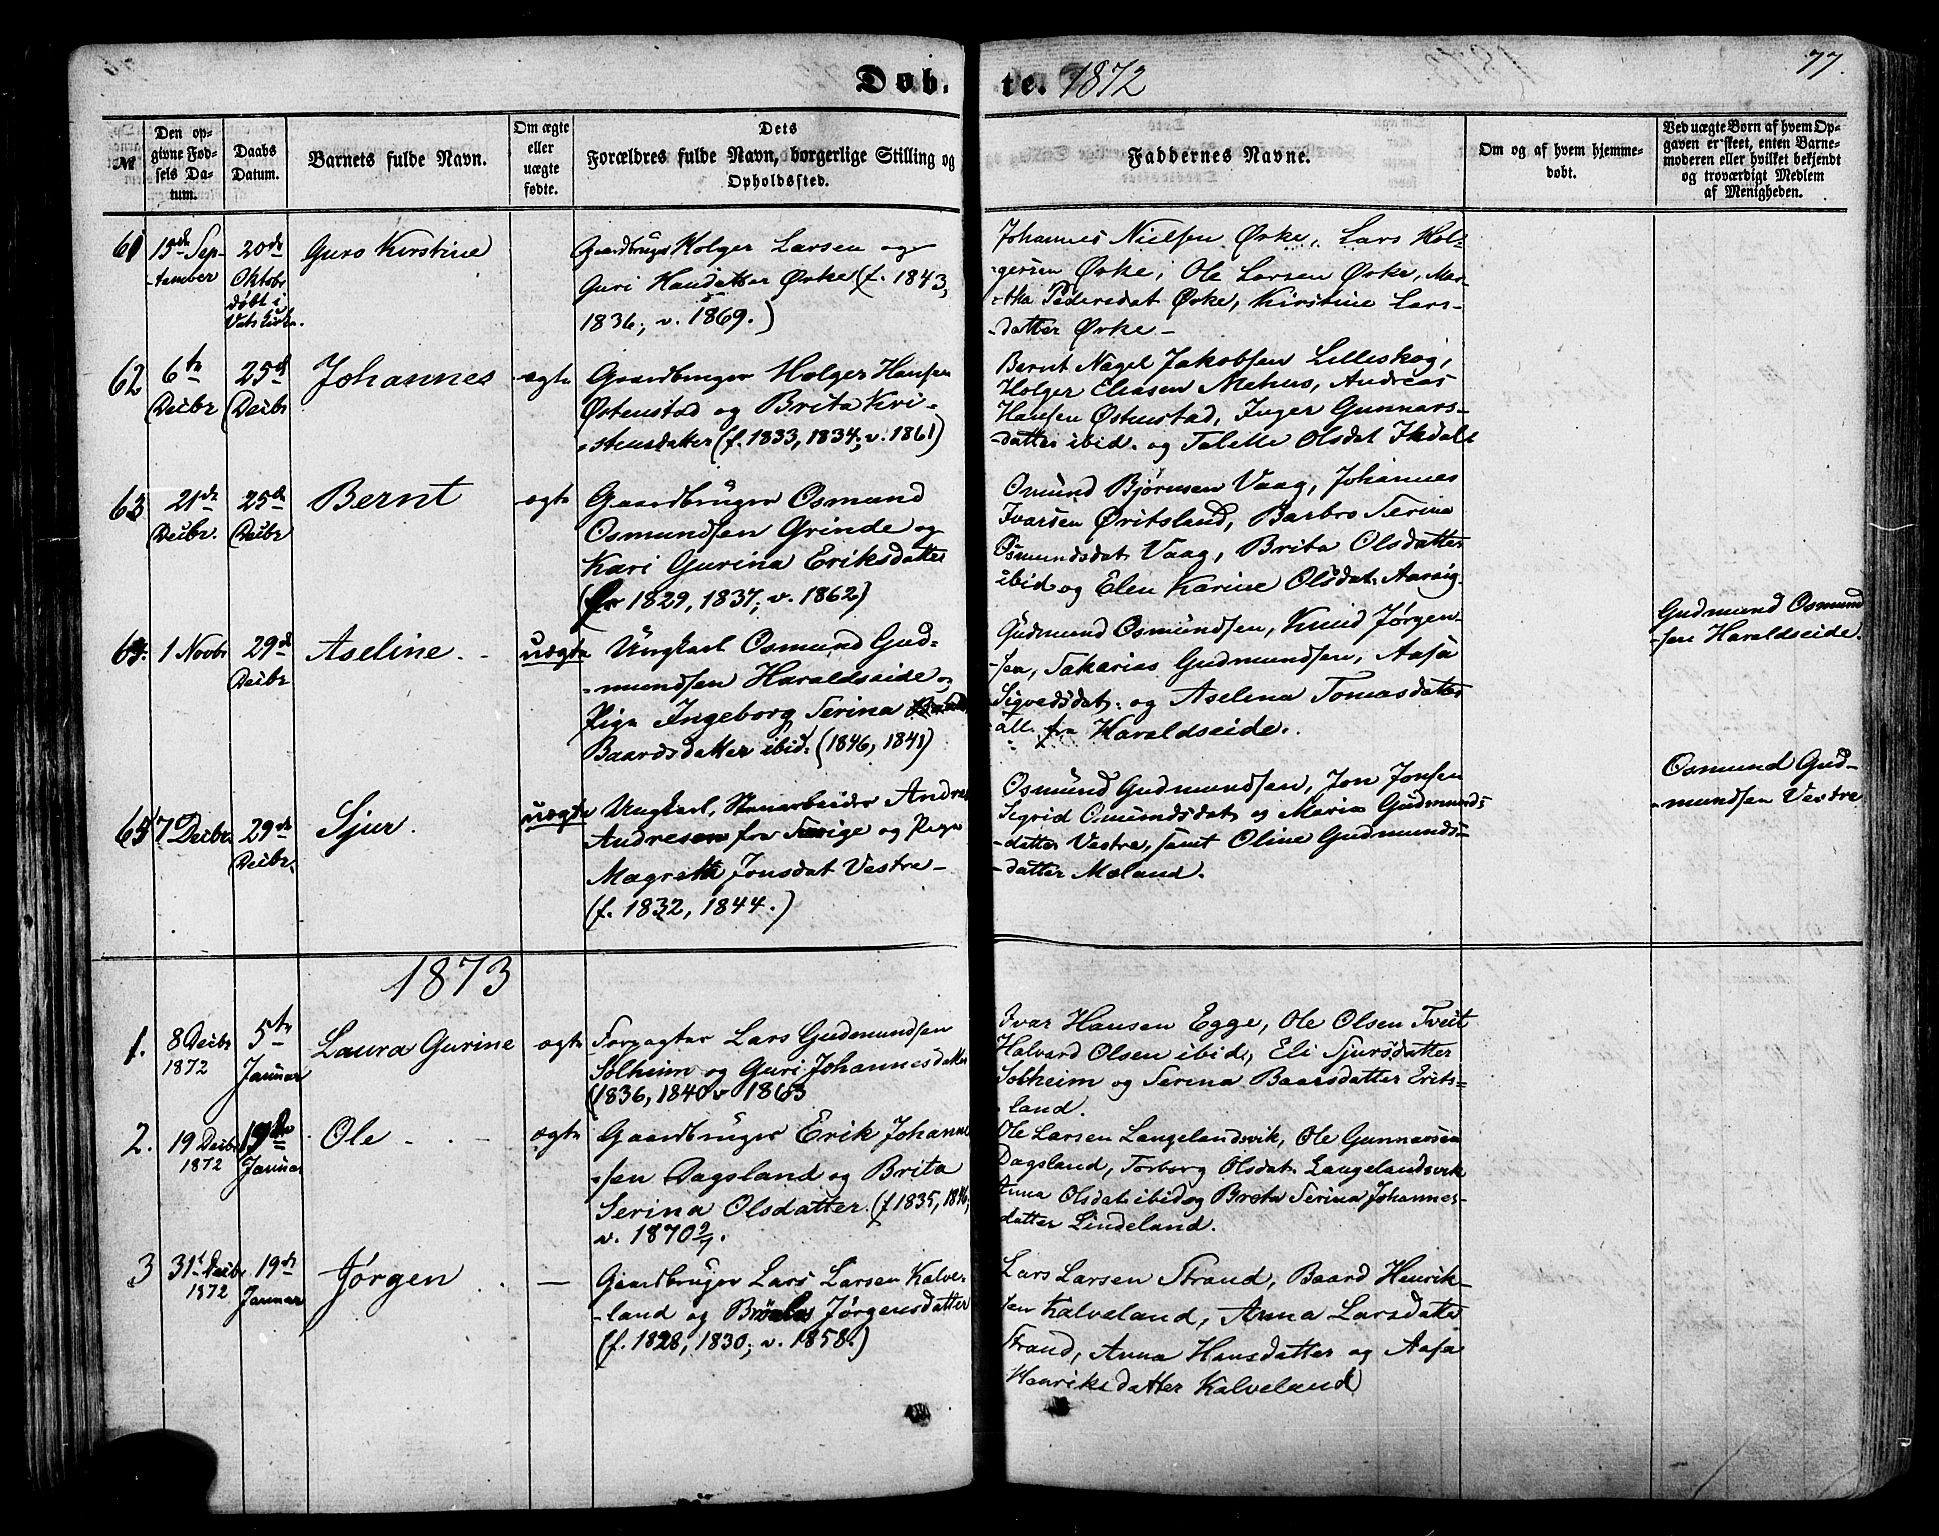 Døb.
te. 1872
77.
№
Den op-
givne Fød-
sels Da-
tum.
Daabs
Datum.
Barnets fulde Navn.
Om ægte
eller
uægte
fødte.
Dets
Forældres fulde Navn, borgerlige Stilling og
Opholdssted.
Faddernes Navne.
Om og af hvem hjemme-
døbt.
Ved uægte Børn af hvem Op-
gaven er skeet, enten Barne-
moderen eller hvilket bekjendt
og troværdigt Medlem
af Menigheden.
61
15de Sep-
-tember
20de
Oktobr
døbt i
Guro Kirstine
Gaardbruger Holger Larsen og
Guri Hansdatter Ørke (f. 1843,
1836, v. 1869.)
Johannes Nielsen Ørke, Lars Hol-
gersen Ørke, Ole Larsen Ørke, Mar-
-tha Pedersdat Ørke, Kirstine Lars-
-datter Ørke -
62
6te
Decbr
25de
Decbr
Johannes
ægte
Gaardbruger Holger Hansen
Østenstad og Brita Kri-
-stensdatter (f. 1833, 1834; v. 1861)
Bernt Nagel Jakobsen Lilleskog,
Holger Eliasen Mehus, Andreas
Hansen Østenstad, Inger Gunnars-
-datter ibid. og Talette Olsdat
63
21de
Decbr.
25de
Decbr
Bernt
ægte
Gaardbruger Osmund
Osmundsen Grinde og
Kari Gurina Eriksdatter
(f. 1829, 1837; v. 1862)
Omund Bjørnsen Vaag, Johannes
Ivarsen Øritsland, Barbro Serina
Osmundsdat. Vaag, Brita Olsdatter
ibid og Elen Karine Olsdat. Aarvig.
64.
1 Novbr
29de
Decbr
Aseline.
uægte
Ungkarl Osmund Gud-
-mundsen Haraldseide og
Pige Ingeborg Serina
Baardsdatter ibid. (1846, 1841)
Gudmund Osmundsen, Knud Jørgen-
-sen, Sakarias Gudmundsen, Aasa
Sigvedsdat. og Aselena Tomasdatter
all. fra Haraldseide.
Gudmund Osmund
-sen Haraldseide.
65
7 Decbr.
29de
Decbr.
Sjur.
uægte
Ungkarl, Stenarbeider Andre
Andresen fra Sverige og Pige
Magrethe Jonsdat Vestre -
(f. 1832, 1844.)
Osmund Gudmundsen, Jon Jonsen
Sigrid Omundsdat og Maria Gudmunds-
-datter Vestre, samt Oline Gudmunds-
-datter Mæland.
Osmund Gud-
-mundsen Vestre
1873
1.
8 Decbr
1872
5te
Januar
Laura Gurine
ægte
Forpagter Lars Gudmundsen
Solheim og Guri Johannesdatter
(1836, 1840 v 1863
Ivar Hansen Egge, Ole Olsen Tveit
Halvard Olsen ibid, Eli Sjursdatter
Solheim og Serina Baarsdatter Erits-
-land.
2.
19 Decbr
1872
19de
Januar
Ole
ægte
Gaardbruger Erik Johanne
-sen Dagsland og Brita
Serina Olsdatter. (f 1835, 1846,
v. 1870 9/7.
Ole Larsen Langelandsvik, Ole Gunnarsen
Dagsland, Torborg Olsdat. Langelandsvik
Anna Olsdat. ibid og Brita Serina Johannes-
datter Lindeland.
3
31t Decbr
1872
19de
Januar
Jørgen
-
Gaardbruger Lars Larsen Kalve-
-land og Jørgensdatter
(f. 1828, 1830; v. 1858.)
Lars Larsen Strand, Baard Henrik-
sen Kalveland, Anna Larsdatter
Strand, Anna Hansdatter og Aasa
Henriksdatter Kalveland